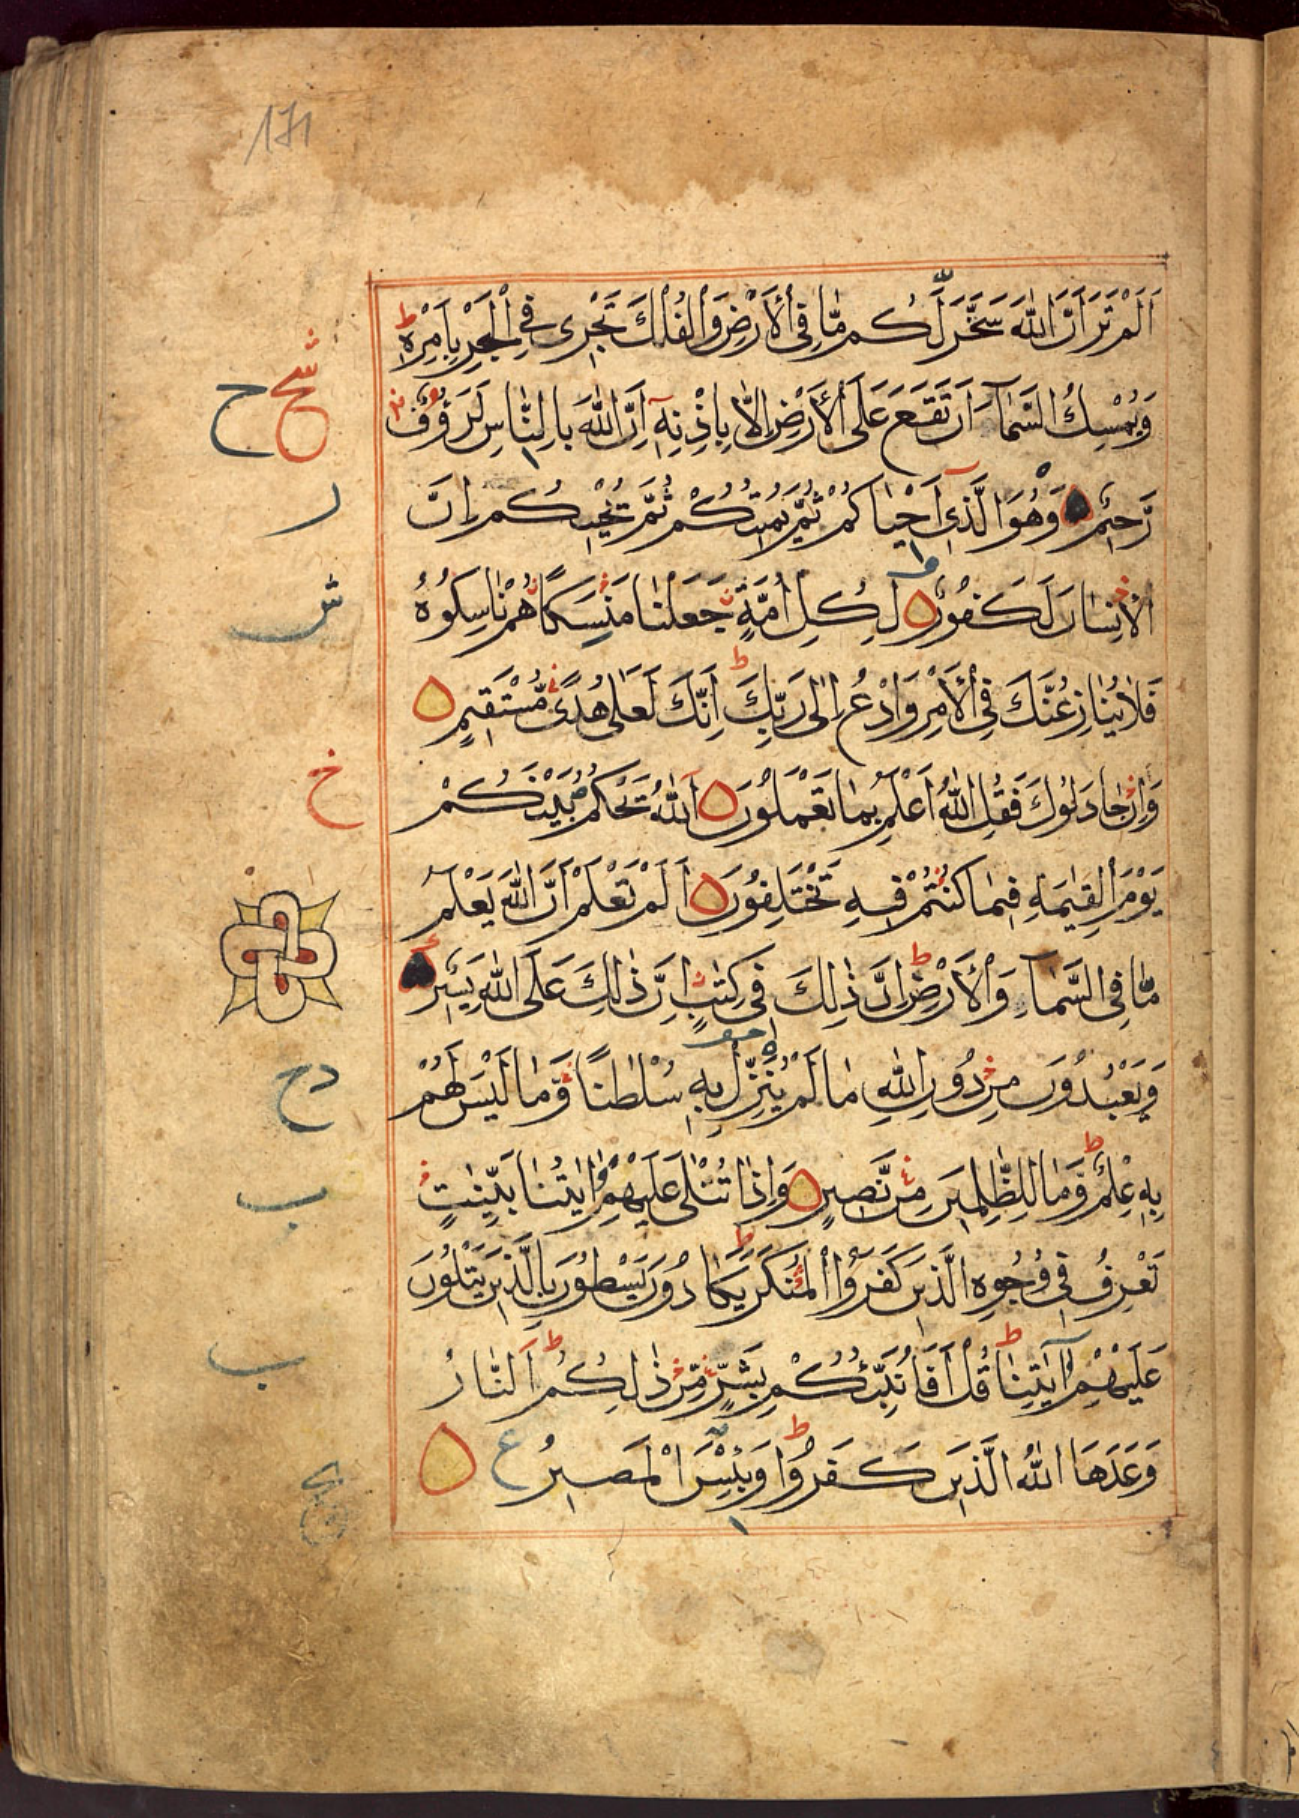 171
اَلَمْ تَرَ اَنَّ اللّٰهَ سَخَّرَ لَكُم مَّا فِى الْاَرْضِ وَالْفُلْكَ تَجْرِى فِى الْبَحْرِ بِاَمْرِهٖ ط
وَيُمْسِكُ السَّمَآءَ اَنْ تَقَعَ عَلَى الْاَرْضِ اِلَّا بِاِذْنِهٖ اِنَّ اللّٰهَ بِالنَّاسِ لَرَؤُفٌ
رَّحِيْمٌ وَهُوَ الَّذِىْ اَحْيَاكُمْ ثُمَّ يُمِيْتُكُمْ ثُمَّ يُحْيِيْكُمْ اِنَّ
الْاِنْسَانَ لَكَفُوْرٌ لِكُلِّ اُمَّةٍ جَعَلْنَا مَنْسَكًا هُمْ نَاسِكُوْهُ
فَلَا يُنَازِعُنَّكَ فِى الْاَمْرِ وَادْعُ اِلٰى رَبِّكَ ط اِنَّكَ لَعَلٰى هُدًى مُّسْتَقِيْمٍ
وَاِنْ جَادَلُوْكَ فَقُلِ اللّٰهُ اَعْلَمُ بِمَا تَعْمَلُوْنَ اَللّٰهُ يَحْكُمُ بَيْنَكُمْ
يَوْمَ الْقِيٰمَةِ فِيْمَا كُنْتُمْ فِيْهِ تَخْتَلِفُوْنَ اَلَمْ تَعْلَمْ اَنَّ اللّٰهَ يَعْلَمُ
مَا فِى السَّمَآءِ وَالْاَرْضِ ط اِنَّ ذٰلِكَ فِىْ كِتٰبٍ اِنَّ ذٰلِكَ عَلَى اللّٰهِ يَسِيْرٌ
وَيَعْبُدُوْنَ مِنْ دُوْنِ اللّٰهِ مَا لَمْ يُنَزِّلْ بِهٖ سُلْطٰنًا وَّمَا لَيْسَ لَهُمْ
بِهٖ عِلْمٌ ط وَمَا لِلظّٰلِمِيْنَ مِنْ نَّصِيْرٍ وَاِذَا تُتْلٰى عَلَيْهِمْ اٰيٰتُنَا بَيِّنٰتٍ
تَعْرِفُ فِىْ وُجُوْهِ الَّذِيْنَ كَفَرُوا الْمُنْكَرَ ط يَكَادُوْنَ يَسْطُوْنَ بِالَّذِيْنَ يَتْلُوْنَ
عَلَيْهِمْ اٰيٰتِنَا ط قُلْ اَفَاُنَبِّئُكُمْ بِشَرٍّ مِّنْ ذٰلِكُمْ ط اَلنَّارُ
وَعَدَهَا اللّٰهُ الَّذِيْنَ كَفَرُوْا ط وَبِئْسَ الْمَصِيْرُ ع
ح
ر
ش
خ
دح
ب
ب